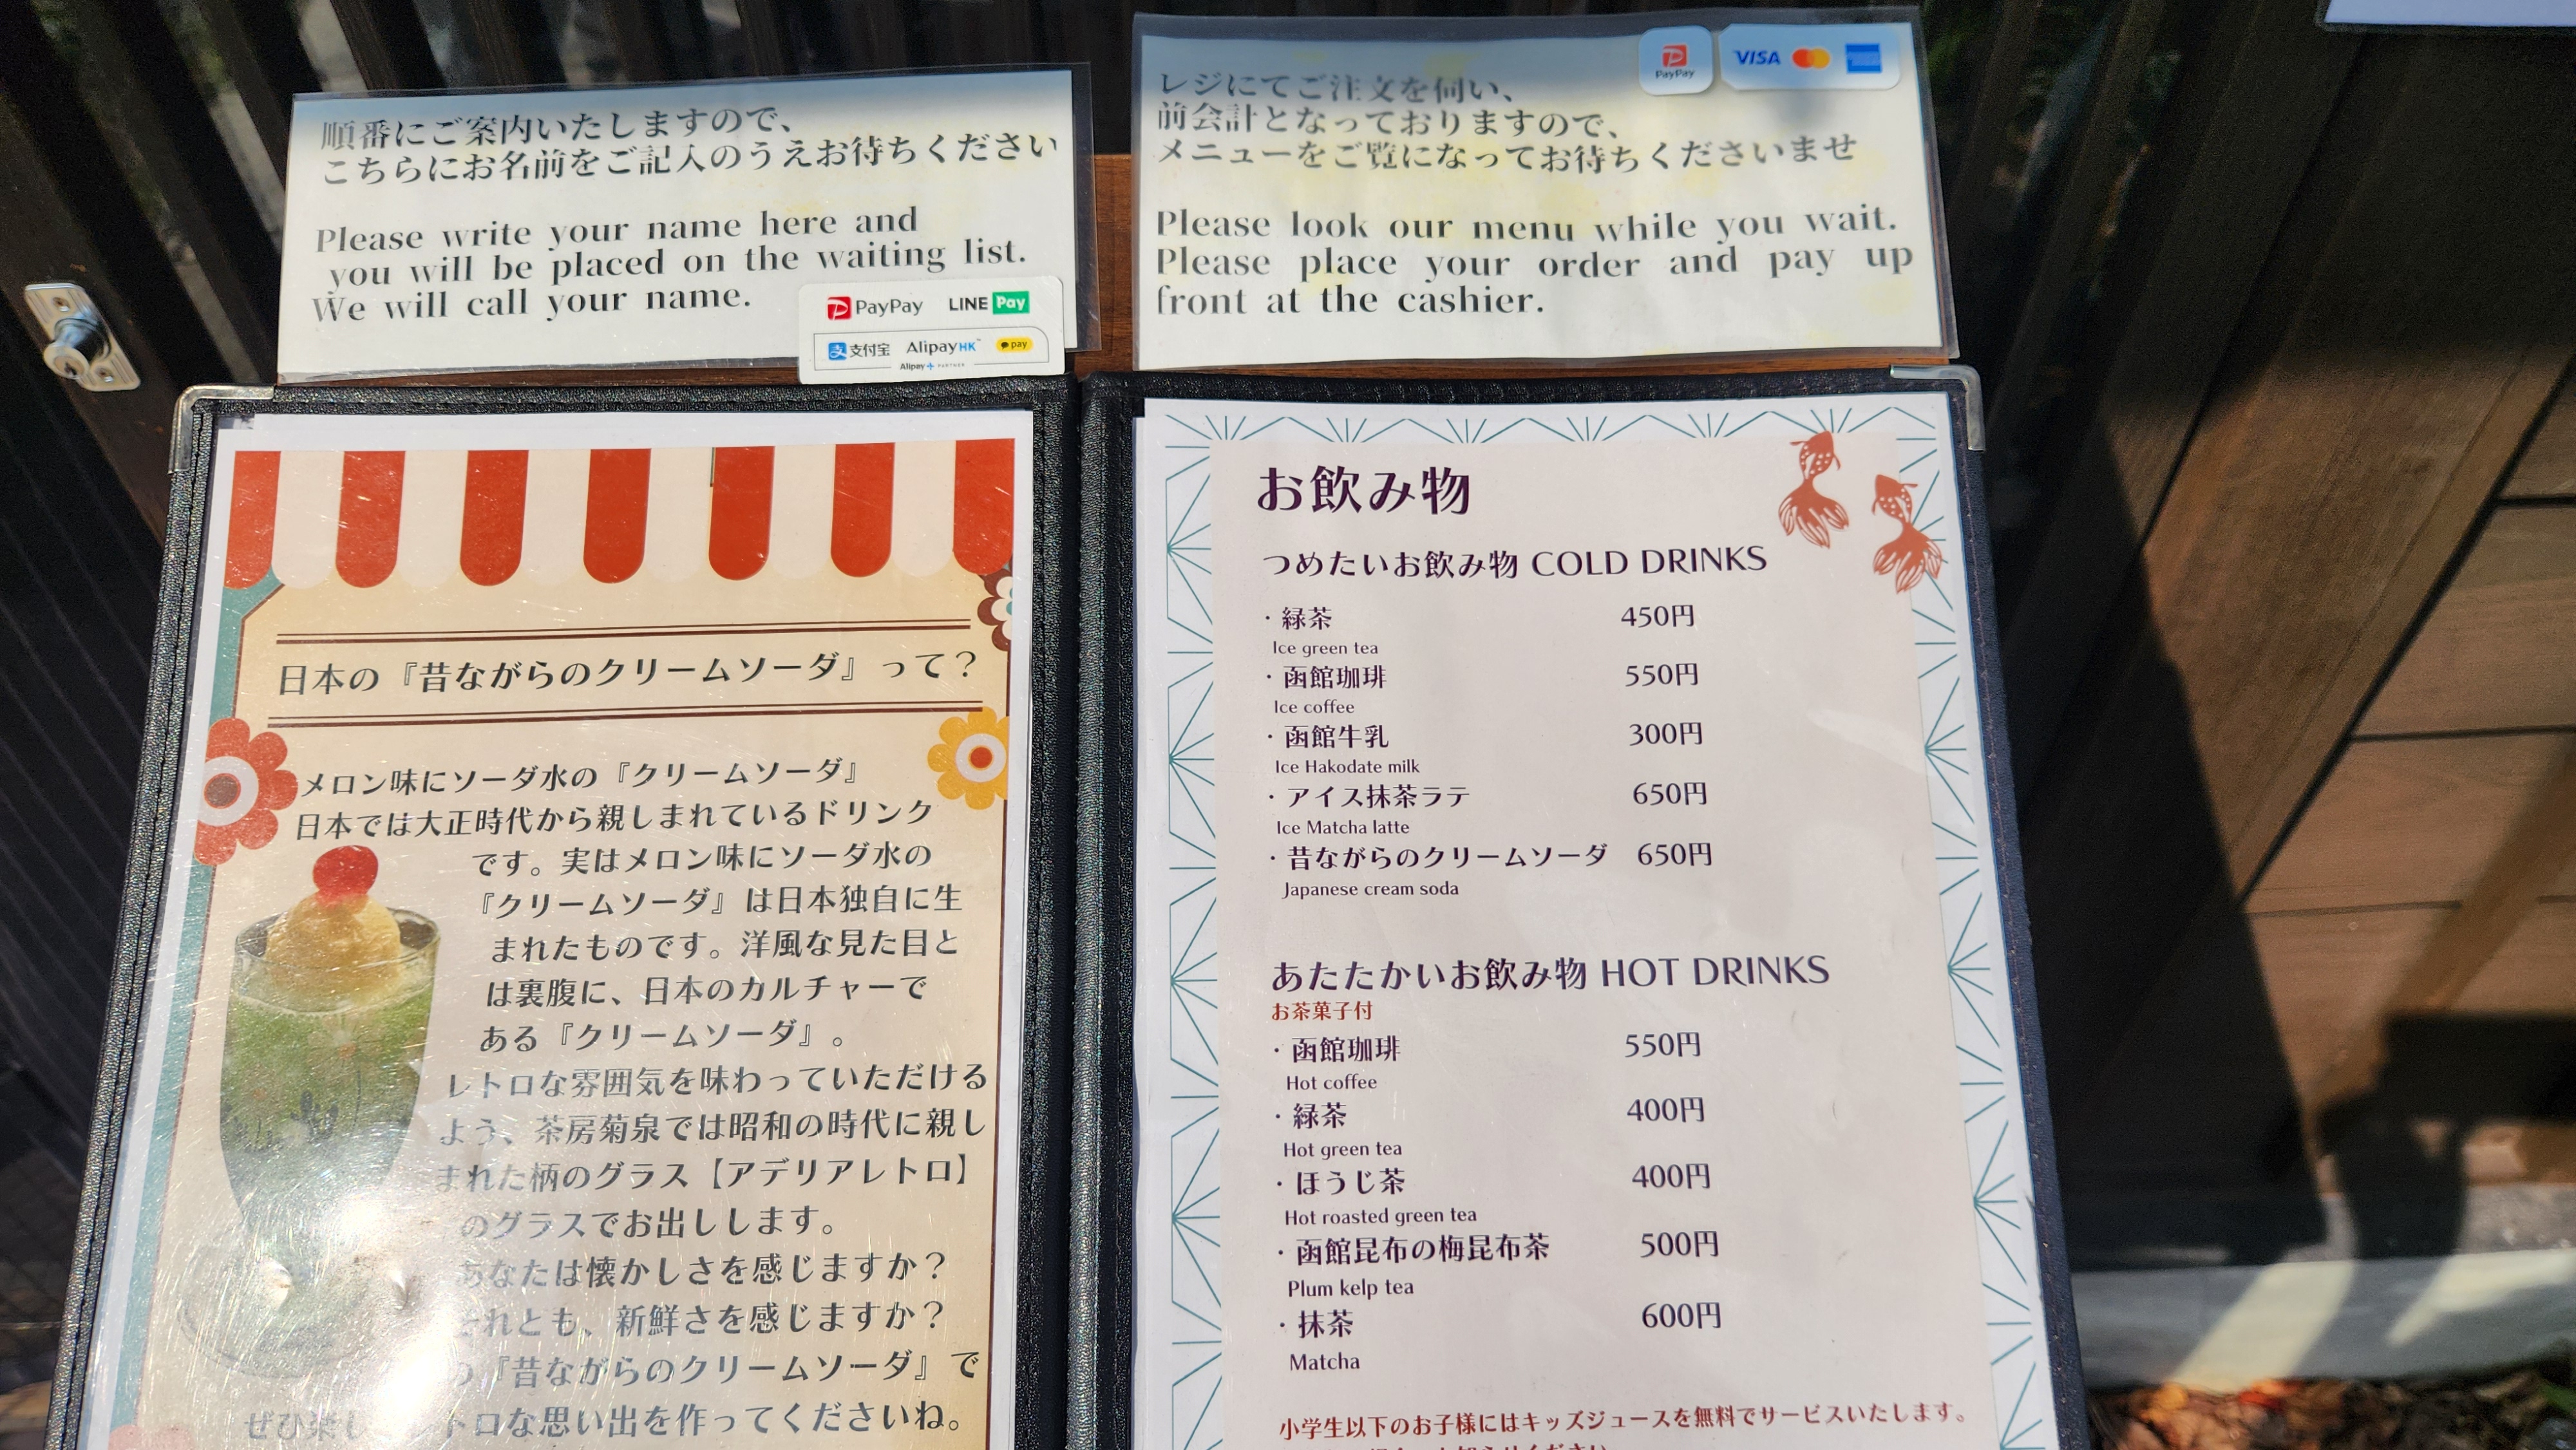 順番にご案内いたしますので、
こちらにお名前をご記入のうえお待ちください
Please write your name here and
you will be placed on the waiting list.
We will call your name.
PayPay LINE Pay
支付宝 AlipayHK pay
Alipay+ PARTNER
PayPay
VISA
レジにてご注文を伺い、
前会計となっておりますので、
メニューをご覧になってお待ちくださいませ
Please look our menu while you wait.
Please place your order and pay up
front at the cashier.
日本の『昔ながらのクリームソーダ』って？
メロン味にソーダ水の『クリームソーダ』
日本では大正時代から親しまれているドリンク
です。実はメロン味にソーダ水の
『クリームソーダ』は日本独自に生
まれたものです。洋風な見た目と
は裏腹に、日本のカルチャーで
ある『クリームソーダ』。
レトロな雰囲気を味わっていただける
よう、茶房菊泉では昭和の時代に親し
まれた柄のグラス【アデリアレトロ】
のグラスでお出しします。
あなたは懐かしさを感じますか？
それとも、新鮮さを感じますか？
の『昔ながらのクリームソーダ』で
ぜひ楽し トロな思い出を作ってくださいね。
お飲み物
つめたいお飲み物 COLD DRINKS
・緑茶 450円
Ice green tea
・函館珈琲 550円
Ice coffee
・函館牛乳 300円
Ice Hakodate milk
・アイス抹茶ラテ 650円
Ice Matcha latte
・昔ながらのクリームソーダ 650円
Japanese cream soda
あたたかいお飲み物 HOT DRINKS
お茶菓子付
・函館珈琲 550円
Hot coffee
・緑茶 400円
Hot green tea
・ほうじ茶 400円
Hot roasted green tea
・函館昆布の梅昆布茶 500円
Plum kelp tea
・抹茶 600円
Matcha
小学生以下のお子様にはキッズジュースを無料でサービスいたします。